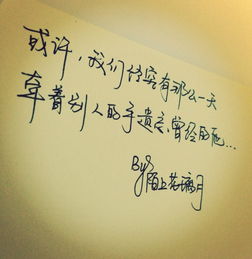 或许，我们终究有那么一天
牵着别人的手遗忘曾经的他...
By:
陌上花璃月